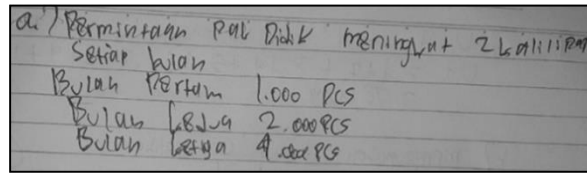 a.) Permintaan Pak Didik meningkat 2 kali lipat
Setiap bulan
Bulan Pertam 1.000 Pcs
Bulan Kedua 2.000 PCS
Bulan Ketiga 4.000 PCS